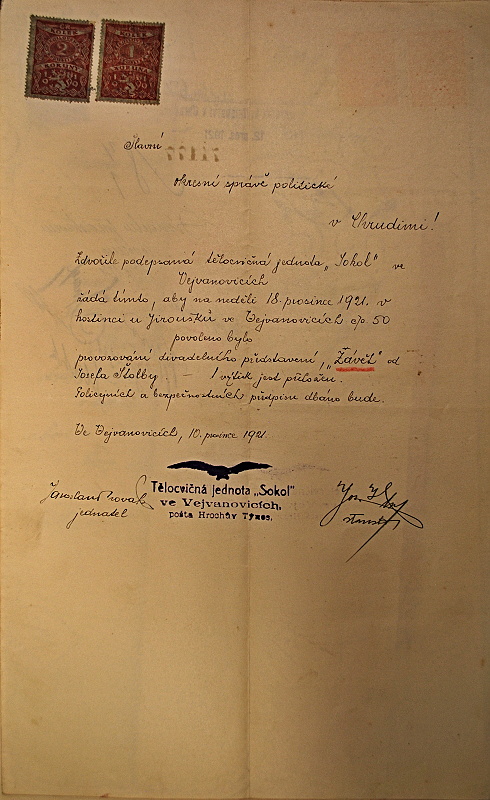 2
1
KORUNA
12. pros. 1921
71477
Slavní
okresní správě politické
v Chrudimi!
Zdvořile podepsaná tělocvičná jednota „Sokol" ve
Vejvanovicích
žádá tímto, aby na neděli 18. prosince 1921. v
hostinci u Jiroušků ve Vejvanovicích čp. 50
povoleno bylo
provozování divadelního představení „Závěť" od
Josefa Štolby — 1 výtisk jest přiložen.
Policejních a bezpečnostních předpisů dbáno bude.
Ve Vejvanovicích, 10. prosince 1921.
Tělocvičná jednota „Sokol"
ve Vejvanovicích,
pošta Hrochův Týnec.
Jaroslav Novák
jednatel
starosta